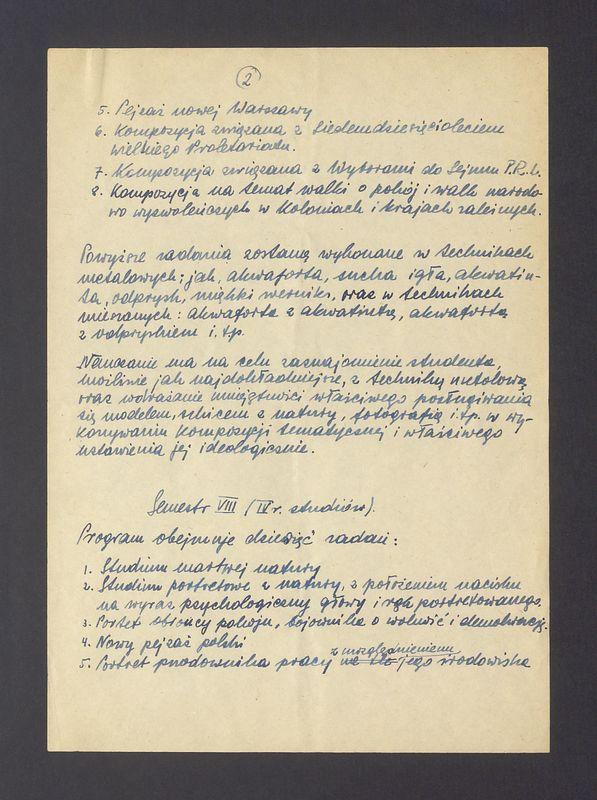 2
5. Pejzaż nowej Warszawy
6. Kompozycja związana z Siedemdziesięcioleciem
wielkiego Proletariatu.
7. Kompozycja związana z Wyborami do Sejmu P.R.L.
8. Kompozycja na temat walki o pokój i walk narodo-
wo wyzwoleńczych w koloniach i krajach zależnych.
Powyższe zadania zostaną wykonane w technikach
metalowych; jak, akwaforta, sucha igła, akwatin-
ta, odprysk, miękki werniks, oraz w technikach
mieszanych: akwaforta z akwatintą, akwaforta
z odpryskiem i.t.p.
Nauczanie ma na celu zaznajomienie studenta,
możliwie jak najdokładniejsze, z techniką metalową
oraz wdrażanie umiejętności właściwego posługiwania
się modelem, szkicem z natury, fotografią i.t.p. w wy-
konywaniu kompozycji tematycznej i właściwego
ustawienia jej ideologicznie.
Semestr VIII (IV r. studiów).
Program obejmuje dziewięć zadań:
1. Studium martwej natury
2. Studium portretowe z natury, z położeniem nacisku
na wyraz psychologiczny głowy i rąk portretowanego.
3. Portret obrońcy pokoju, bojownika o wolność i demokrację.
4. Nowy pejzaż polski
z uwzględnieniem
5. Portret przodownika pracy na tle jego środowiska